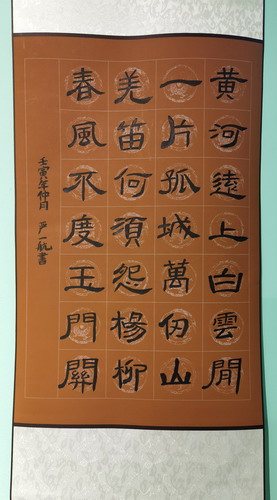 黄河遠上白雲閒
一片孤城萬仞山
羌笛何須怨楊柳
春風不度玉門關
壬寅年仲月 卢一航書